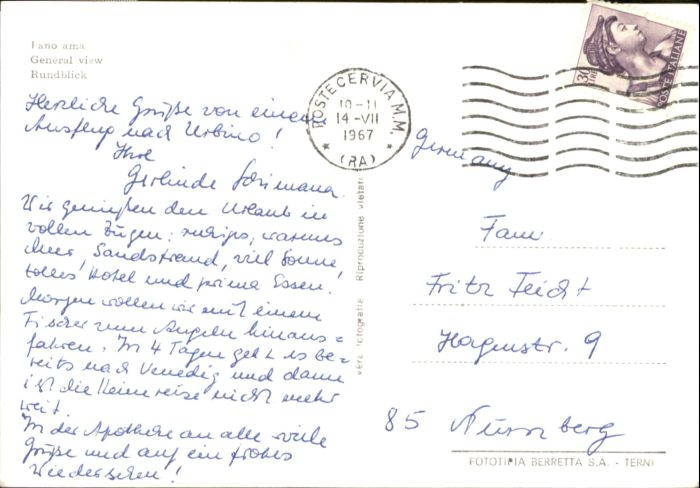 Panorama
General view
Rundblick
Herzliche Grüße von einem
Ausflug nach Urbino!
Ihre
Gerlinde
Wir genießen den Urlaub in
vollen Zügen: ruhiges, warmes
Meer, Sandstrand, viel Sonne,
tolles Hotel und prima Essen.
Morgen wollen wir mit einem
Fischer zum Angeln hinaus=
fahren. In 4 Tagen geht es be=
reits nach Venedig und dann
ist die Heimreise nicht mehr
weit.
In der Apotheke an alle viele
Grüße und auf ein frohes
Wiedersehen!
vera fotografia Riproduzione vietata
POSTE CERVIA M.M.
10-11
14-VII
1967
(RA)
30
LIRE
POSTE ITALIANE
Germany
Fam
Fritz Feicht
Hagenstr. 9
85 Nürnberg
FOTOTIPIA BERRETTA S.A. - TERNI